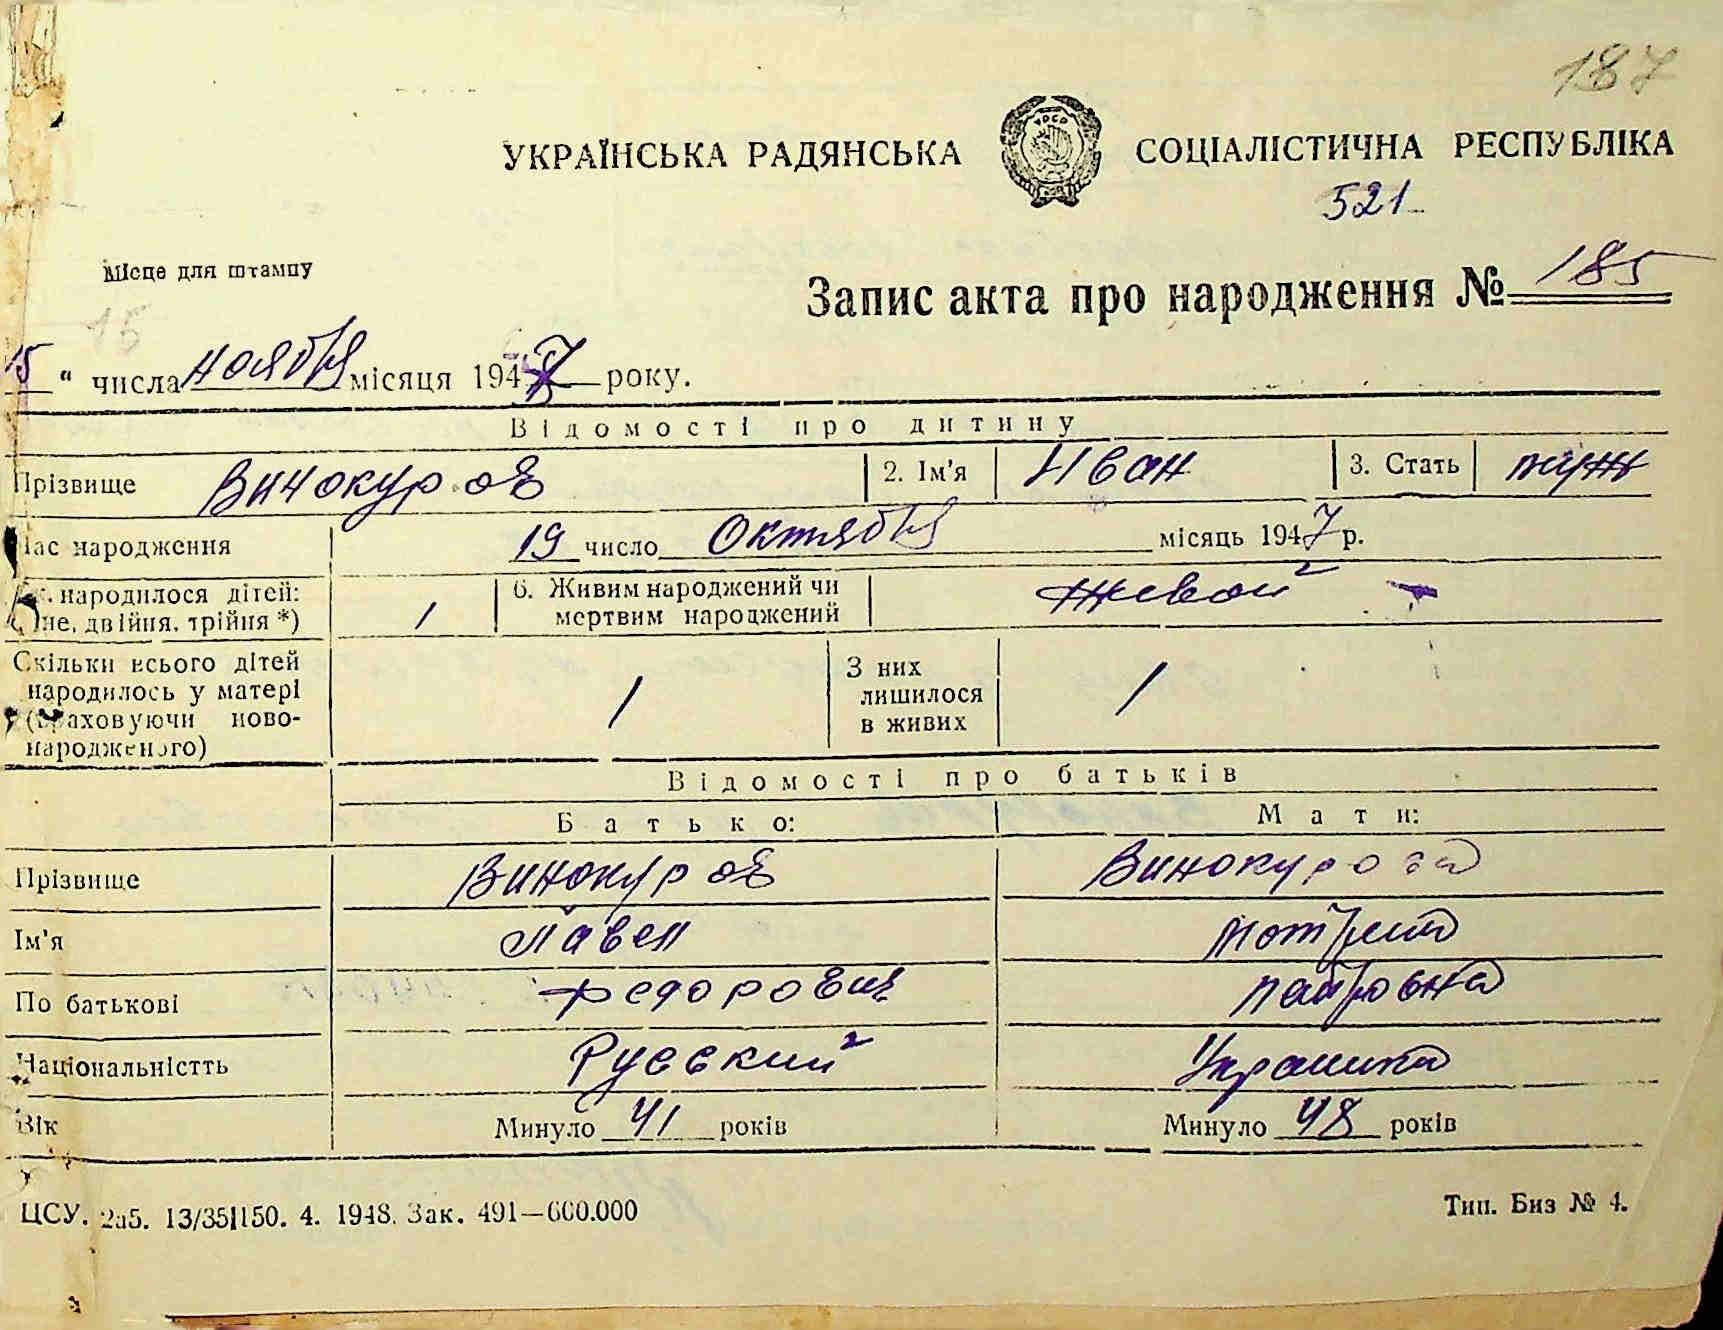 187
УКРАЇНСЬКА РАДЯНСЬКА СОЦІАЛІСТИЧНА РЕСПУБЛІКА
521
Місце для штампу
Запис акта про народження № 185
15 " числа ноября місяця 1947 року.
Відомості про дитину
Прізвище Винокуров 2. Ім'я Иван 3. Стать муж
Час народження 19 число Октября місяць 1947 р.
народилося дітей: 1 6. Живим народжений чи Живой
двійня, трійня *) мертвим народжений
Скільки всього дітей 1 З них 1
народилось у матері лишилося
(враховуючи ново- в живих
народженого)
Відомості про батьків
Батько: Мати:
Прізвище Винокуров Винокурова
Ім'я Павел Мотрия
По батькові Федорович
Національністть Русский Украинка
Вік Минуло 41 років Минуло 48 років
ЦСУ. 2а5. 13/351150. 4. 1948. Зак. 491—600.000 Тип. Биз № 4.